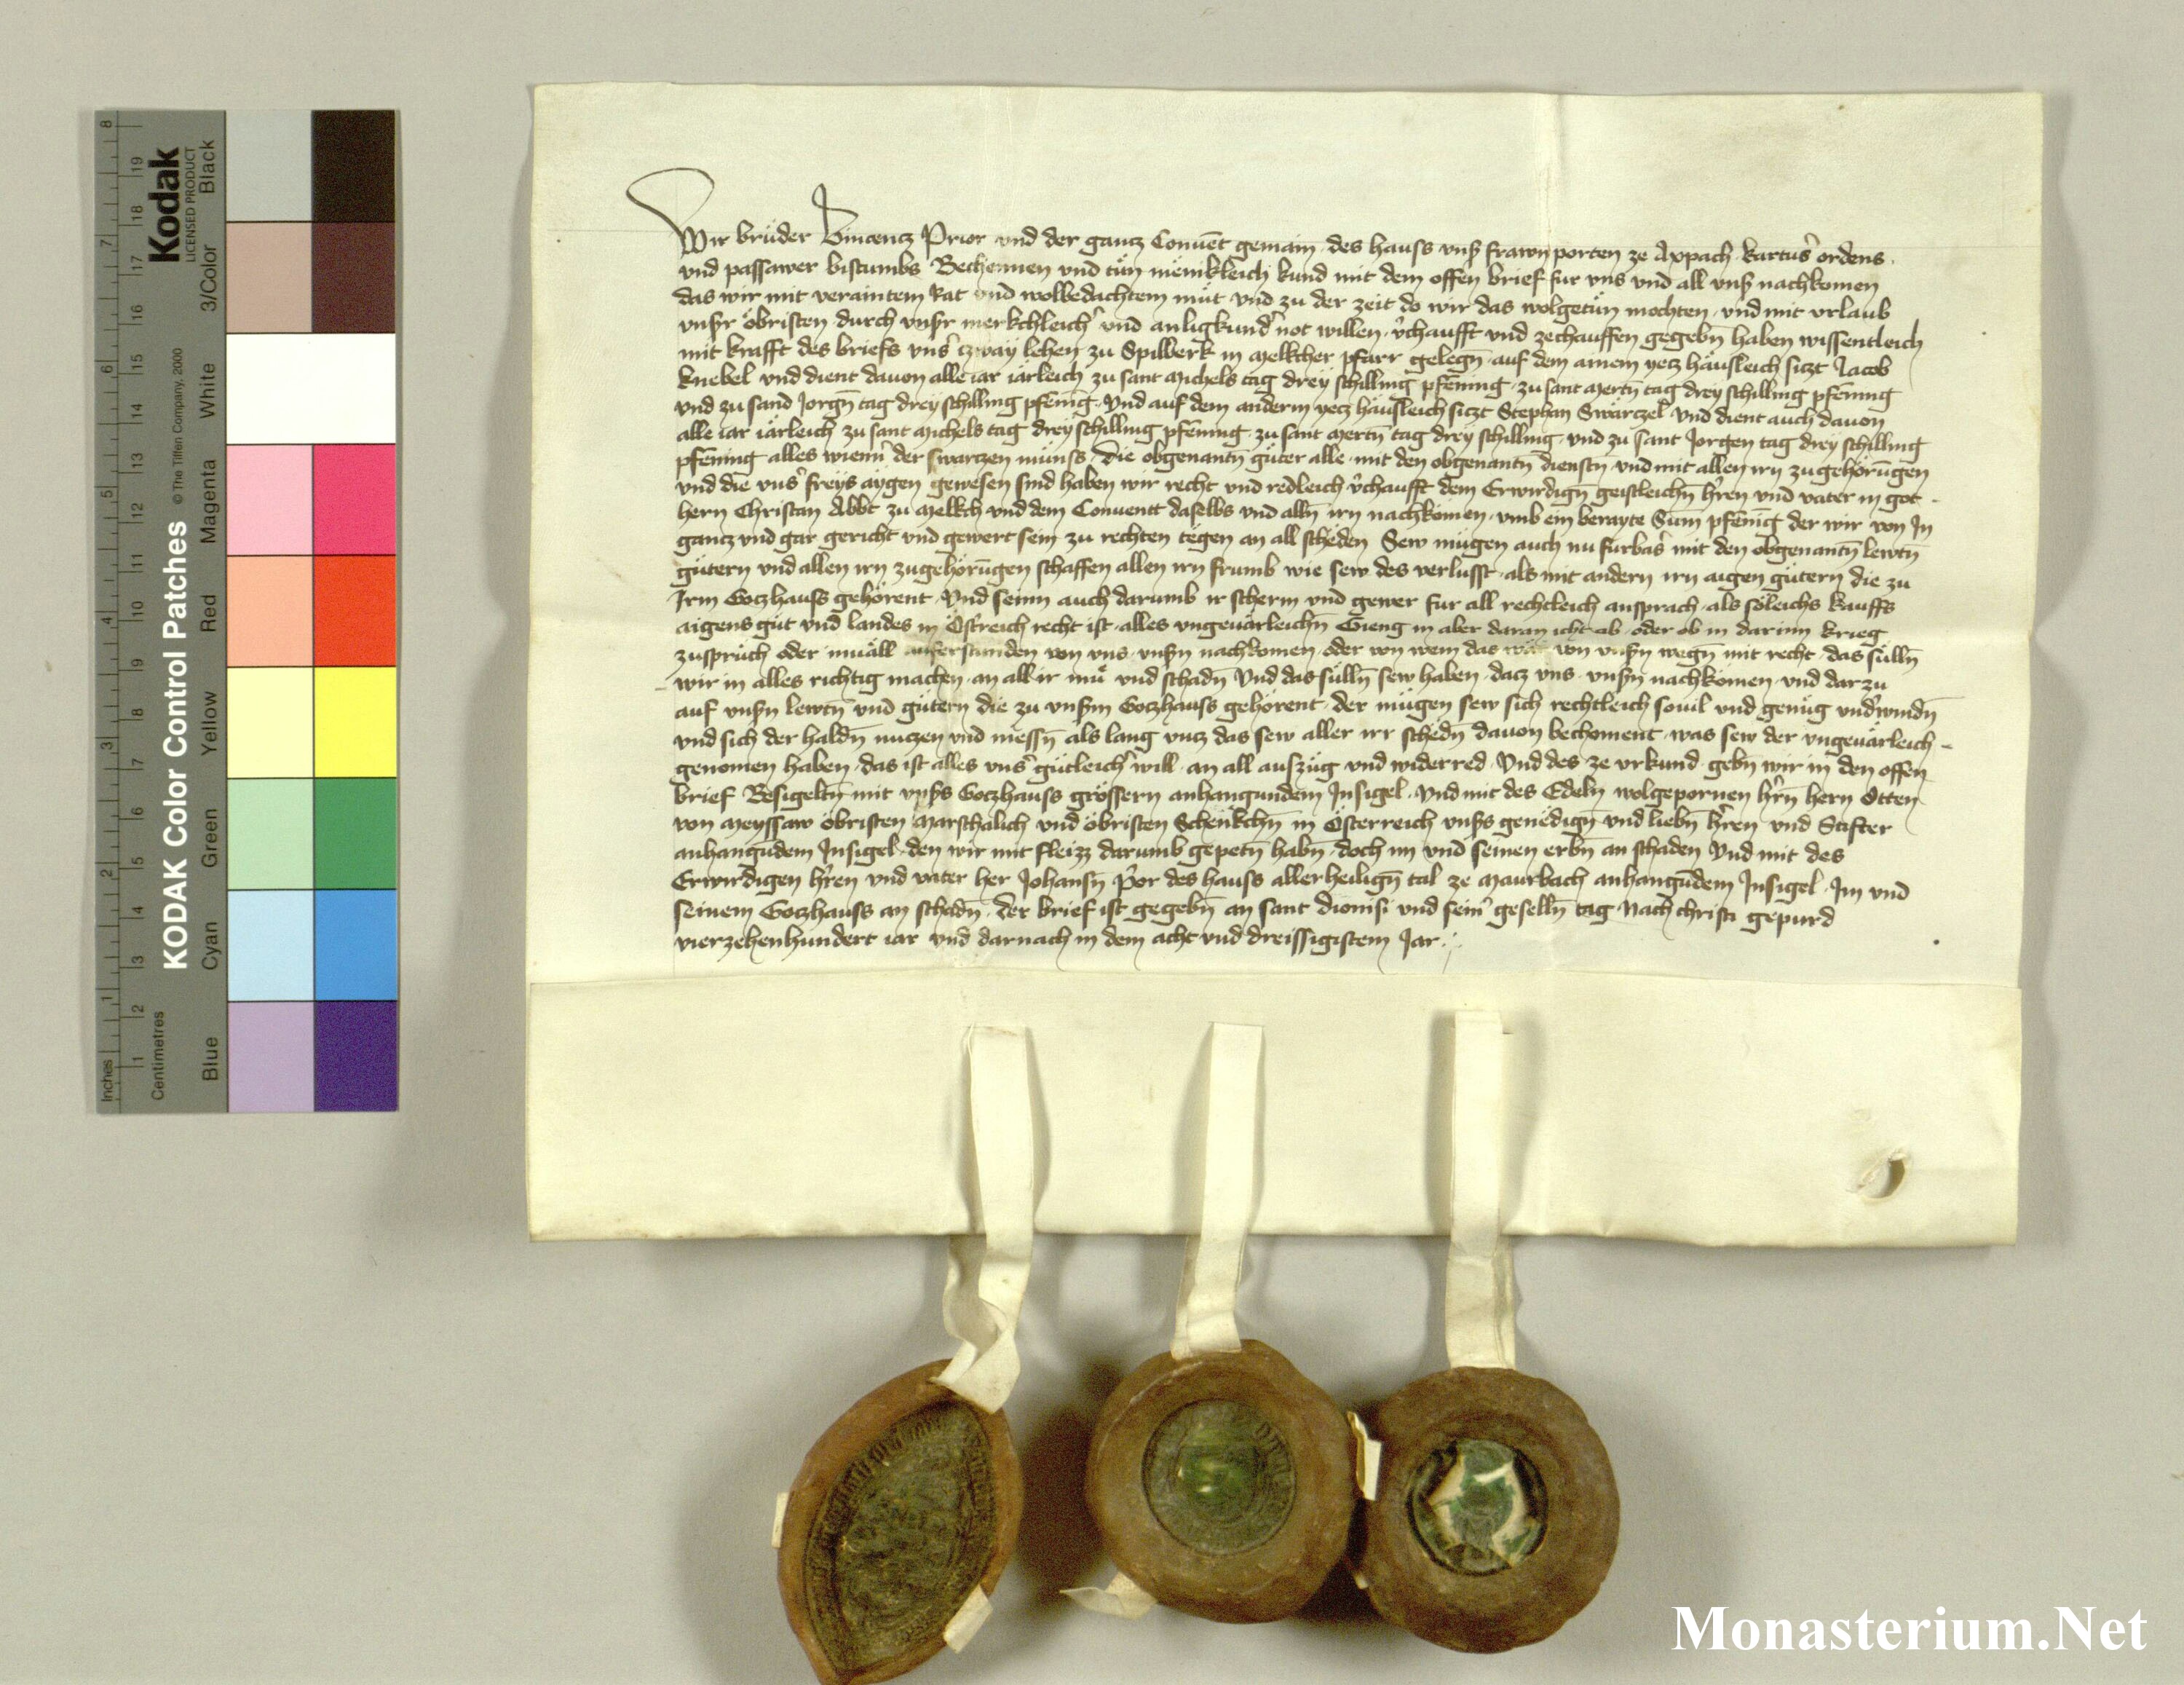 Wir brüder Vincencz Prior und der gancz Conuēt gemain des hauss vnsß frawn porten ze Axpach kartus̉ ordens
und passawer bistumbs Bechennen und tün mënikleich kund mit dem offen brief fur vns und all vnsß nachkomen
das wir mit veraintem Rat vnd wolbedachtem müt vnd zu der zeit do wir das wolgetün mochten vnd mit vrlaub
vnsßr öbristen durch vnsßr merkchleich̉ vnd anligkund̉ not willen v̉chaufft und zechauffen gegebn̄ haben wissentleich
mit krafft des briefs vns̉ czway lehen zu Spilberk in Melkcher pfarr gelegn̄ auf dem ainem yecz häusleich siczt Jacob
knebel vnd dient dauon alle iar iärleich zu sant Michels tag drey schilling pfēning zu sant Mertn̄ tag drey schilling pfēning
und zu sand Jorgn̄ tag drey schilling pfēnīg Vnd auf dem anderm yecz häusleich siczt Stephan Swärczel vnd dient auch dauon
alle iar iärleich zu sant Michels tag drey schilling pfēning zu sant Mertn̄ tag drey schilling vnd zu sant Jorgen tag drey schilling
pfēning alles wienn̉ der swarczen münss Die obgenantn̄ güter alle mit den obgenantn̄ dienstn̄ vnd mit allen irn zugehörūgen
und die vns̉ freys äygen gewesen sind haben wir recht und redleich v̉chaufft dem Erwirdign̄ geistleichn̄ hr̉en und vater in got
hern Christan Abbt zu Melkch vnd dem Conuentt daselbs vnd alln̄ irn nachkömen vmb ein berayte Sum pfēnīg der wir von In
gancz vnd gar gericht vnd gewert sein zu rechten tëgen an all schëden Sew mügen auch nu fürbas̉ mit den obgenantn̄ lewtn̄
gütern vnd allen irn zugehörūgen schaffen allen irn frumb wie sew des verlusst als mit andern irn aigen gütern die zu
Irm Goczhauss gehörent Vnd seinn auch darumb ir scherm vnd gewer fur all rechtleich ansprach als söleichs kauffs
aigens güt vnd landes in Östreich recht ist alles vngeuärleichn̄ Gieng in aber daran icht ab oder ob in darinn krieg
zuspruch oder inuäll auferstunden von vns vnsßn nachkomen oder von wem das wär von vnsßn wegn̄ mit recht das sülln̄
wir in alles richtig machen an all ir mü̉ vnd schadn̄ Vnd das sülln̄ sew haben dacz vns vnsßn nachkömen vnd darzu
auf vnsßn lewtn̄ vnd gütern die zu vnsßm Goczhauss gehörent der mügen sew sich rechtleich souil vnd genüg vnd̉windn̄
vnd sich der haldn̄ nuczen vnd niessn̄ als lang vncz das sew aller irr schëdn̄ dauon bechoment was sew der vngeuärleich
genomen haben das ist alles vns̉ gütleich̉ will an all auszüg vnd widerred Vnd des ze vrkund gebn̄ wir in den offen
brief Besigeltn̄ mit vnsßs Goczhauss grössern anhangundem Insigel Vnd mit des Edeln wolgepornen hr̉n hern Otten
von Meyssaw öbristen Marschalich vnd öbristen Schenkchn̄ in Österreich vnsßs genëdign̄ vnd liebn̄ hr̉en vnd Stifter
anhangūdem Insigel den wir mit fleizz darumb gepetn̄ habn̄ doch im vnd seinen erbn̄ an schaden Vnd mit des
Erwirdigen hr̉en vnd vater her Johansn̄ P̉or des hauss allerheilign̄ tal ze Maurbach anhangūdem Insigel Im vnd
seinem Goczhauss an schadn̄ der brief ist gegebn̄ an sant dionisi vnd sein̉ geselln̄ tag Nach christi gepurd
vierzehenhundert iar vnd darnach in dem acht vnd dreissigistem Jar
KODAK Color Control Patches © The Tiffen Company, 2000
Kodak
LICENSED PRODUCT
Blue Cyan Green Yellow Red Magenta White 3/Color Black
Inches 1 2 3 4 5 6 7 8
Centimetres 1 2 3 4 5 6 7 8 9 10 11 12 13 14 15 16 17 18 19
Monasterium.Net